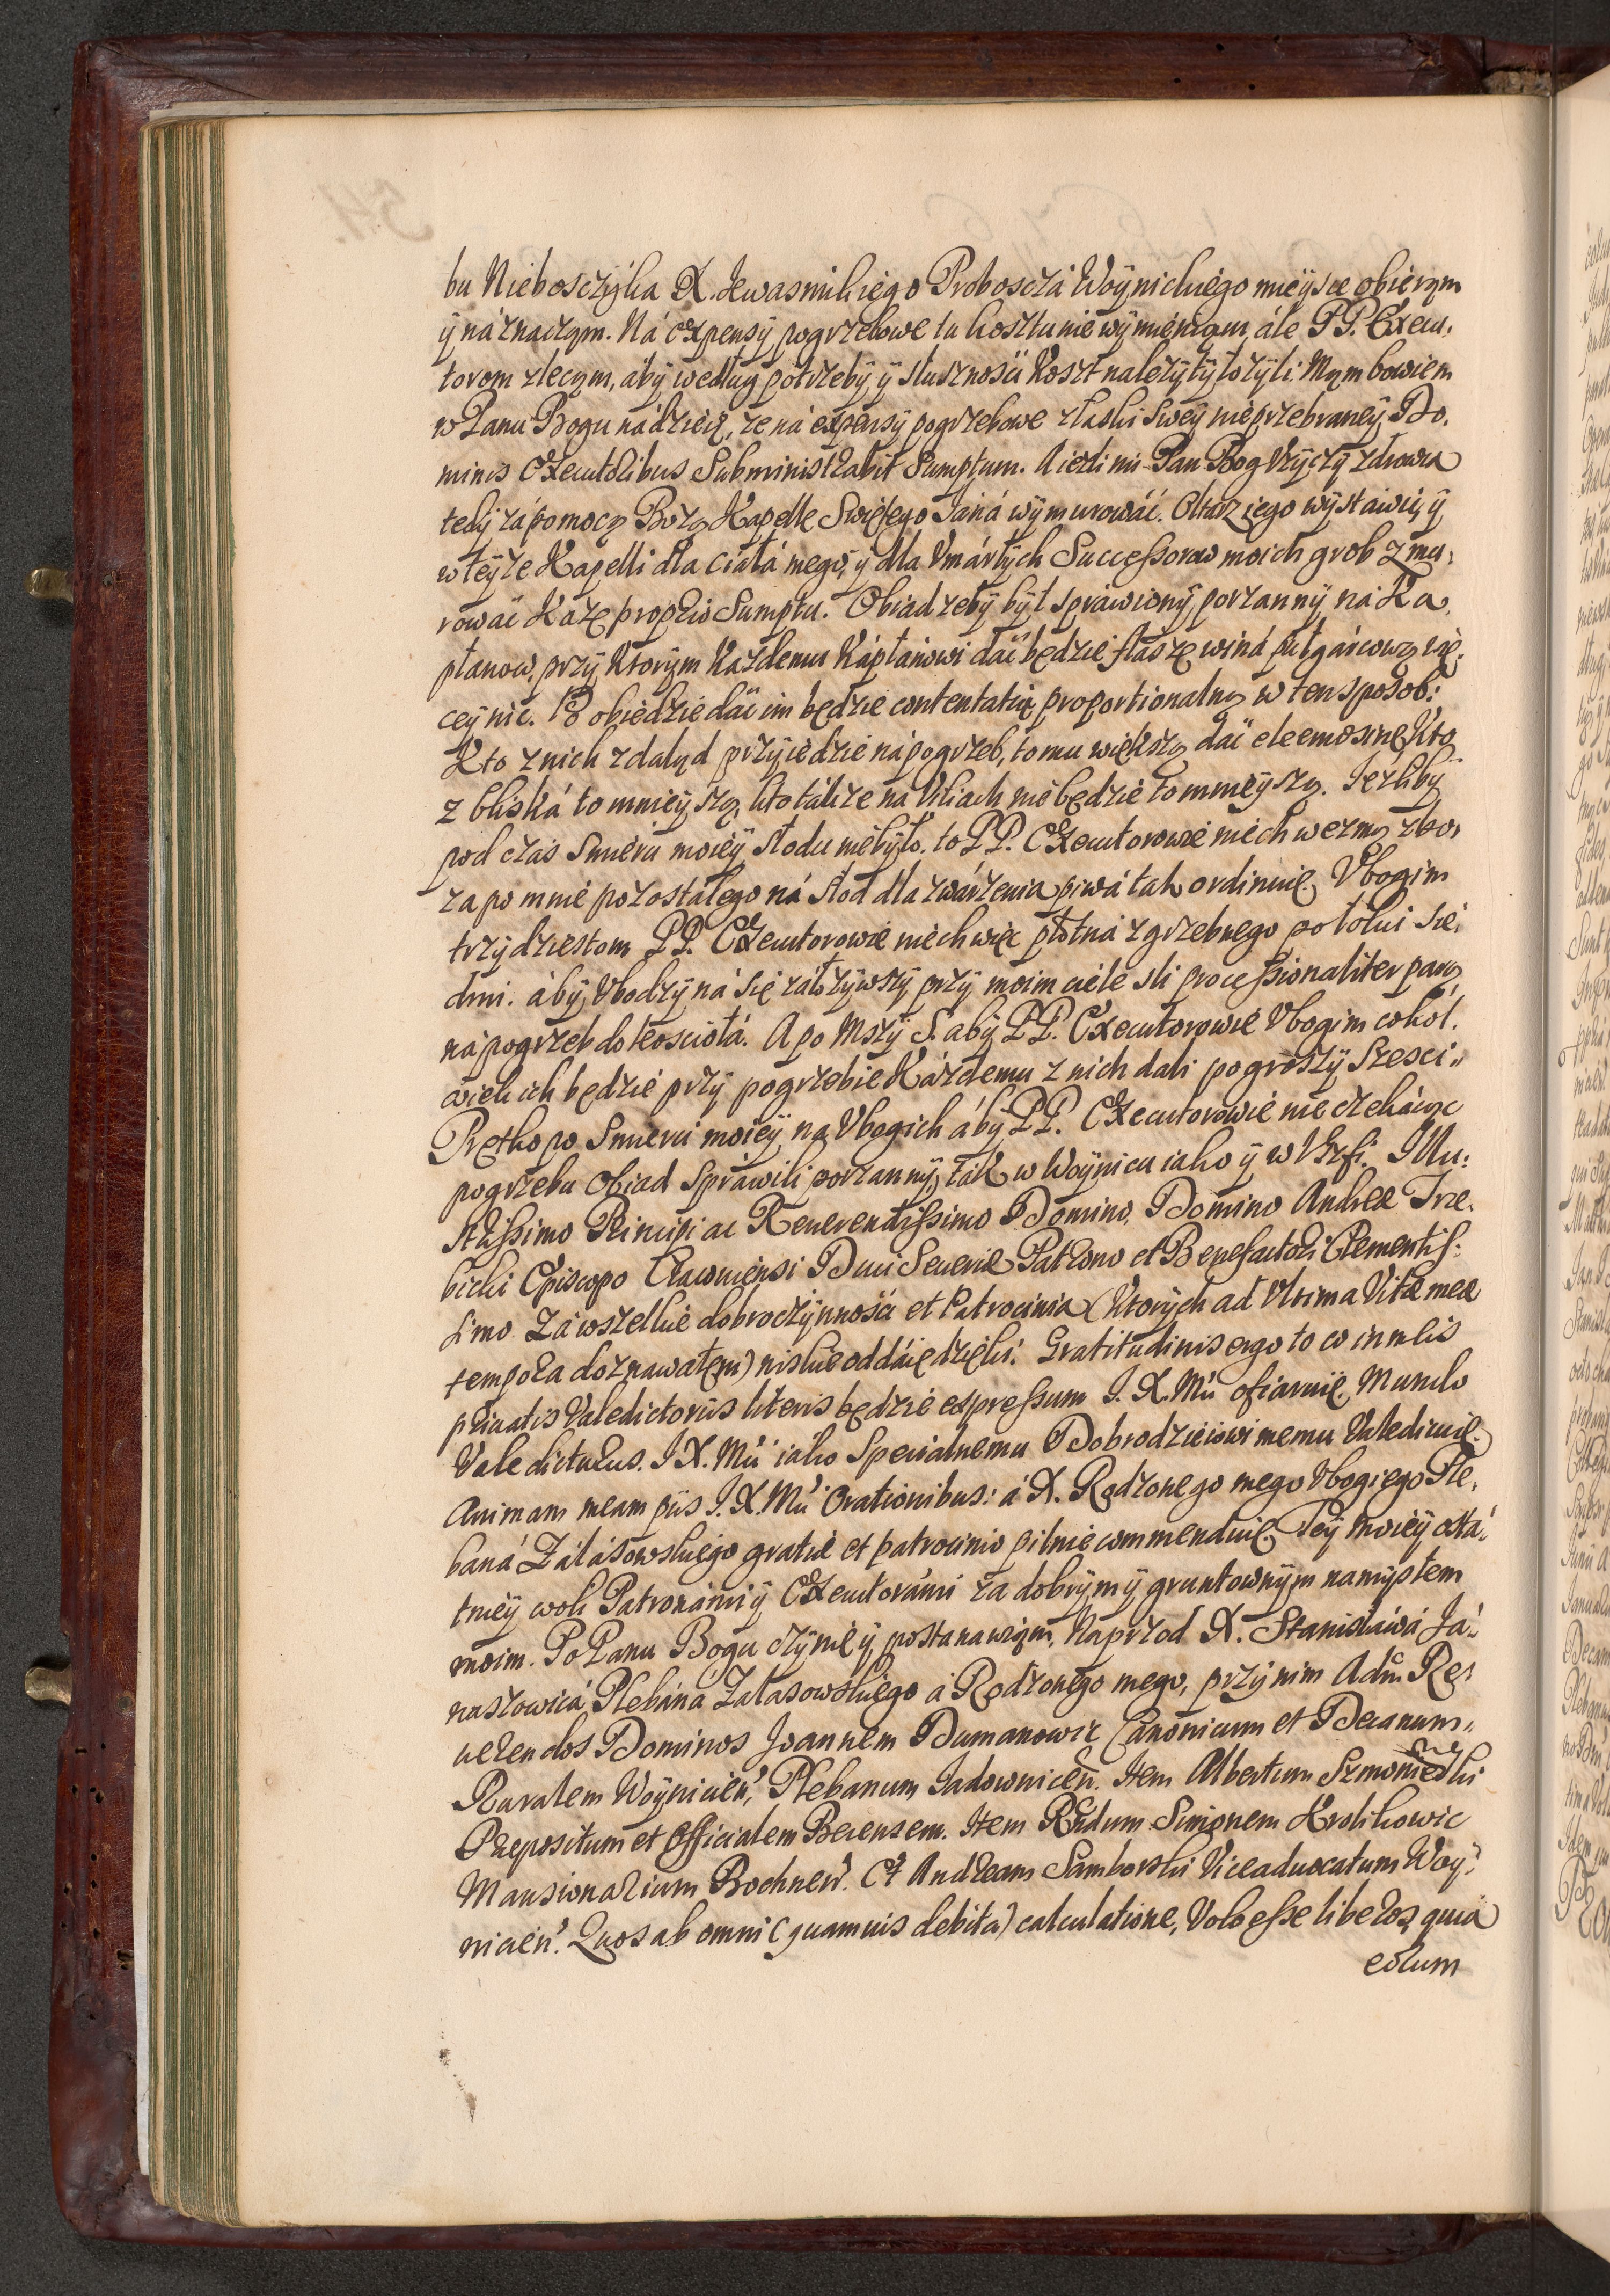 bu Nieboszczyka X. Iewasinskiego Proboscza Woynickiego mieysce obieram
y náznaczam. Ná expensy pogrzebowe tu kosztu nie wymieniam, ále PP. Execu-
torom zlecam, áby według potrzeby y słusznosci koszt należyty łożyli. Mam bowiem
w Panu Bogu nádzieię, że ná expensy pogrzebowe z łaski swey nieprzebraney Do-
minus Executoribus Subministrabit Sumptum. A iezli mi Pan Bog Vżyczy zdrowia
tedy zá pomocą Bożą Kapellę Swiętego Janá wymurowáć. Ołtarz iego wystawić, y
w teyże Kapelli dla ciáłá mego, y dla Vmárłych Successorow moich grob zmu-
rowáć każę proprio Sumptu. Obiad żeby był spráwiony porzanny ná Ka-
płanow, przy ktorym każdemu Kápłanowi dáć będzie flaszę winá pułgarcową wię-
cey nic. Po obiedzie dáć im będzie contentatią proportionalną w ten sposob:
Kto z nich z daląd przyiedzie ná pogrzeb, temu większą dáć eleemosinę. Kto
z bliská to mnieyszą, kto tákże na Viliach nie będzie to mnieyszą. Ieżliby
pod czás Smierci moiey słodu niebyło. to PP. Executorowie niech wezmą zbo-
za po mnie pozostáłego ná słod dla zwárzenia piwá tak ordinuię. Vbogim
trzydziestom PP. Executorowie niech więc płotná zgrzebnego po łokci sie-
dmi. áby Vbodzy ná się záłożywszy przy moim ciele szli processionaliter parą
ná pogrzeb do kosciołá. A po Mszy S. áby PP. Executorowie Vbogim cokol-
wiek ich będzie przy pogrzebie Káżdemu z nich dali po groszy Szesci.
Prętko po Smierci moiey na Vbogich áby PP. Executorowie nie czekáiąc
pogrzebu Obiad Spráwili porzanny, ták w Woyniciu iako y w Wsi. Illu-
strissimo Principi ac Reuerendissimo Domino, Domino Andreæ Trze-
bicki Episcopo Cracouiensi Duci Seueriæ Patrono et Benefactori Clementis-
simo Zá wszelkie dobroczynności et Patrocinia (ktorych ad Vltima Vitæ meæ
tempora doznawałem) niskie oddáię dzięki. Gratitudinis ergo to co in meis
priuatis Valedictoriis literis będzie expressum J. X. Mći ofiaruię. Mundo
Valedicturus. J. X. Mći iako Specialnemu Dobrodzieiowi memu Valedicuię.
Animam meam piis J. X. Mći Orationibus: á X. Rodzonego mego Vbogiego Ple-
baná Zálásowskiego gratiæ et patrocinio pilnie commenduię. Tey moiey osta-
tniey woli Patronámi y Executorámi za dobrym y gruntownym namysłem
moim. Po Panu Bogu czynię y postanawiam, Naprzod X. Stanisłáwá Já-
naszowicá Plebáná Zálasowskiego á Rodzonego mego, przy nim Adm. Re-
uerendos Dominos Joannem Dumanowic Canonicum et Decanum
Ruralem Woynicień, Plebanum Jadownicen̄. Item Albertum Szmoniewski
Præpositum et Officialem Becensem. Item Rndum Simonem Krolikowic
Mansionarium Bochnen̄. Et Andream Samborski Viceaduocatum Woy-
nicień. Quos ab omni (quamuis debita) calculatione, Volo esse liberos, quia
eorum